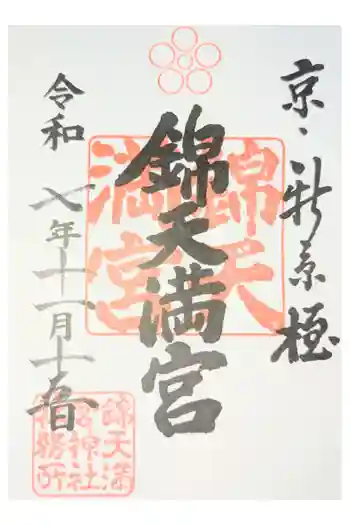 京・新京極
錦天満宮
錦天
満宮
令和七年十一月十五日
錦天満
宮神社
務所